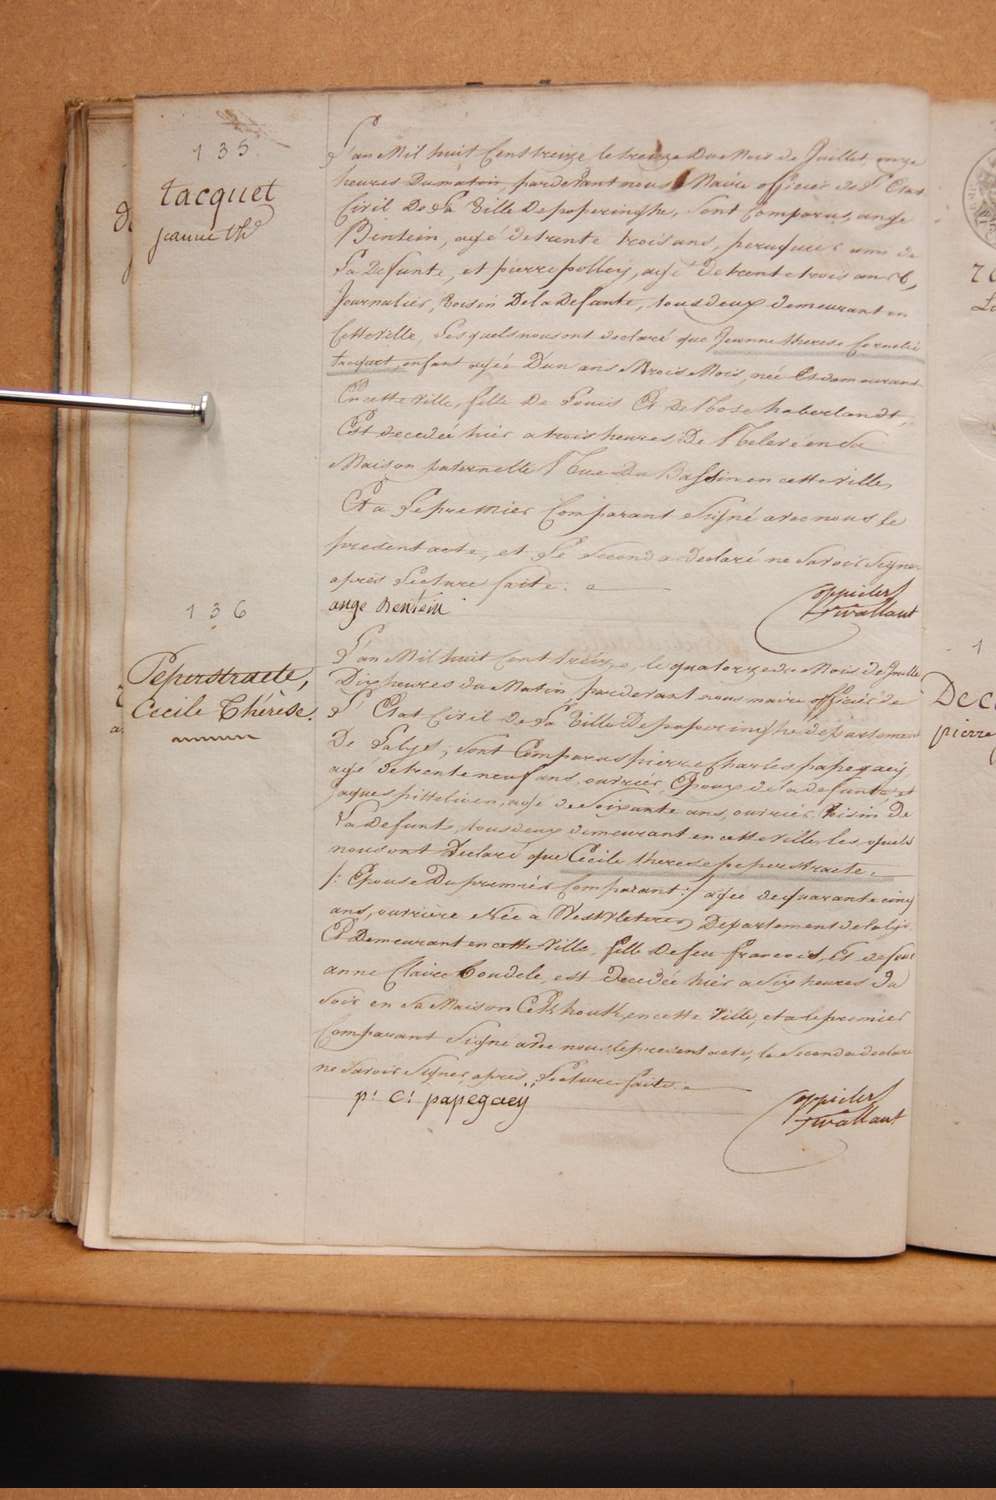 135
tacquet
jeanne th.
L'an Mil huit Cent treize, le treize Du Mois de Juillet, onze
heures Du matin, pardevant nous Maire officier de L'Etat
Civil De La Ville De poperinghe, Sont Comparus, ange
Bentein, agé de trente trois ans, peruquier ami de
La Defunte, et pierre polley, agé de trente trois ans,
Journalier, Voisin De la Defunte, tous deux demeurant en
Cette Ville, Lesquels nous ont declaré que Jeanne therese Cornelie
tacquet, enfant agée D'un an trois Mois, née Et demeurant
En cette Ville, fille De Louis Et De Rose haberlandt,
Est decedée hier a trois heures De Relevé en Sa
Maison paternelle Rue Du Bassin en cette Ville,
Et a Le premier Comparant Signé avec nous le
present acte, et Le Second a declaré ne Savoir Signer
après Lecture faite.
ange Bentein
136
Peperstraete,
Cecile Thérèse.
L'an Mil huit Cent treize, le quatorze du Mois de Juillet
Dix heures du Matin, pardevant nous maire officier de
L'Etat Civil de La Ville De poperinghe département
De La Lys, Sont Comparus pierre Charles papegaeÿ,
agé de trente neuf ans, ouvrier, Epoux de la defunte et
jaques pittelioen, agé de Soixante ans, ouvrier, Voisin De
La Defunte, tous deux demeurant en cette Ville, les quels
nous ont Declaré que Cecile therese peperstraete.
/: Epouse Du premier Comparant :/ agée de quarante cinq
ans, ouvrière Née a Westvleteren Departement de la Lys
Et Demeurant en cette Ville, fille De feu francois, Et de feue
anne Claire Coudele, est Decedée hier a Six heures Du
Soir en Sa Maison en cette Ville, et a le premier
Comparant Signé avec nous le present acte, le Second a declaré
ne Savoir Signer, après Lecture faite.
p: C: papegaeÿ
1
pierre